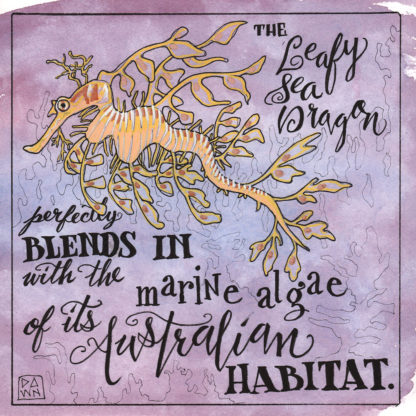 THE
Leafy
Sea
Dragon
perfectly
BLENDS IN
with the
marine algae
of its
Australian
HABITAT.
DAWN